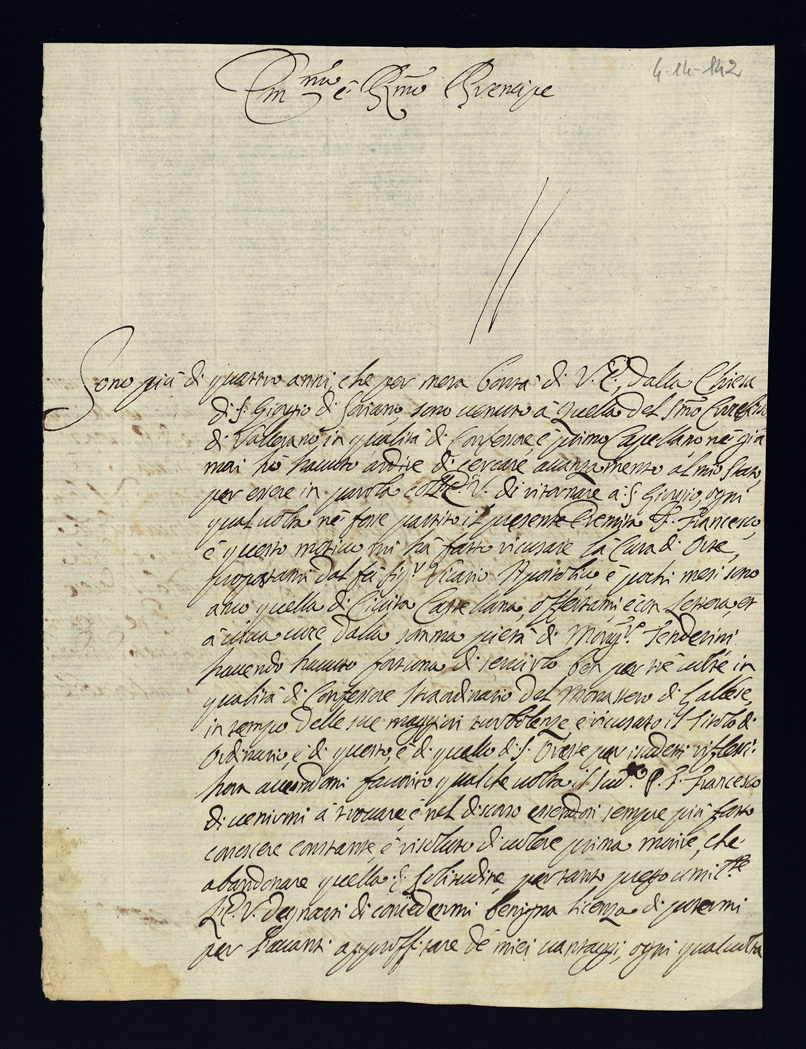 4-14-142
Em.mo e R.mo Prencipe
Sono più di quattro anni, che per mera bontà di V. E., dalla Chiesa
di S. Giorgio di Soriano, sono venuto à quella del S.mo
di Vallerano in qualità di Confessore e primo Capellano ne già
mai hò havuto ardire di cercare avanzamento al mio stato,
per essere in parola coll'E. V. di ritornare a S. Giorgio, ogni
qual volta ne fosse partito il presente Eremita F. Francesco,
e questo motivo mi hà fatto ricusare la Cura di Orte,
propostami dal fù Sig.r Vicario Apostolico e pochi mesi sono
anco quella di Civita Castellana offertami e con lettera, et
à viva voce dalla somma pietà di Mons.r Tenderini
havendo havuto fortuna di servirlo ben per trè volte in
qualità di Confessore straordinario del Monastero di Gallese,
in tempo delle sue maggiori turbolenze e ricusato il titolo di
Ordinario, e di questo e di quello di S. per riflessi:
hora essendomi favorito qualche volta il P. F. Francesco
di venirmi à trovare, e nel discorso essendosi sempre più fatto
conoscere constante, e risoluto di volere prima morire, che
abandonare quella S. Solitudine, pertanto prego
L'E. V. degnarsi di concedermi benigna licenza di potermi
per l'avanti approffittare de miei vantaggi, ogni qualvolta